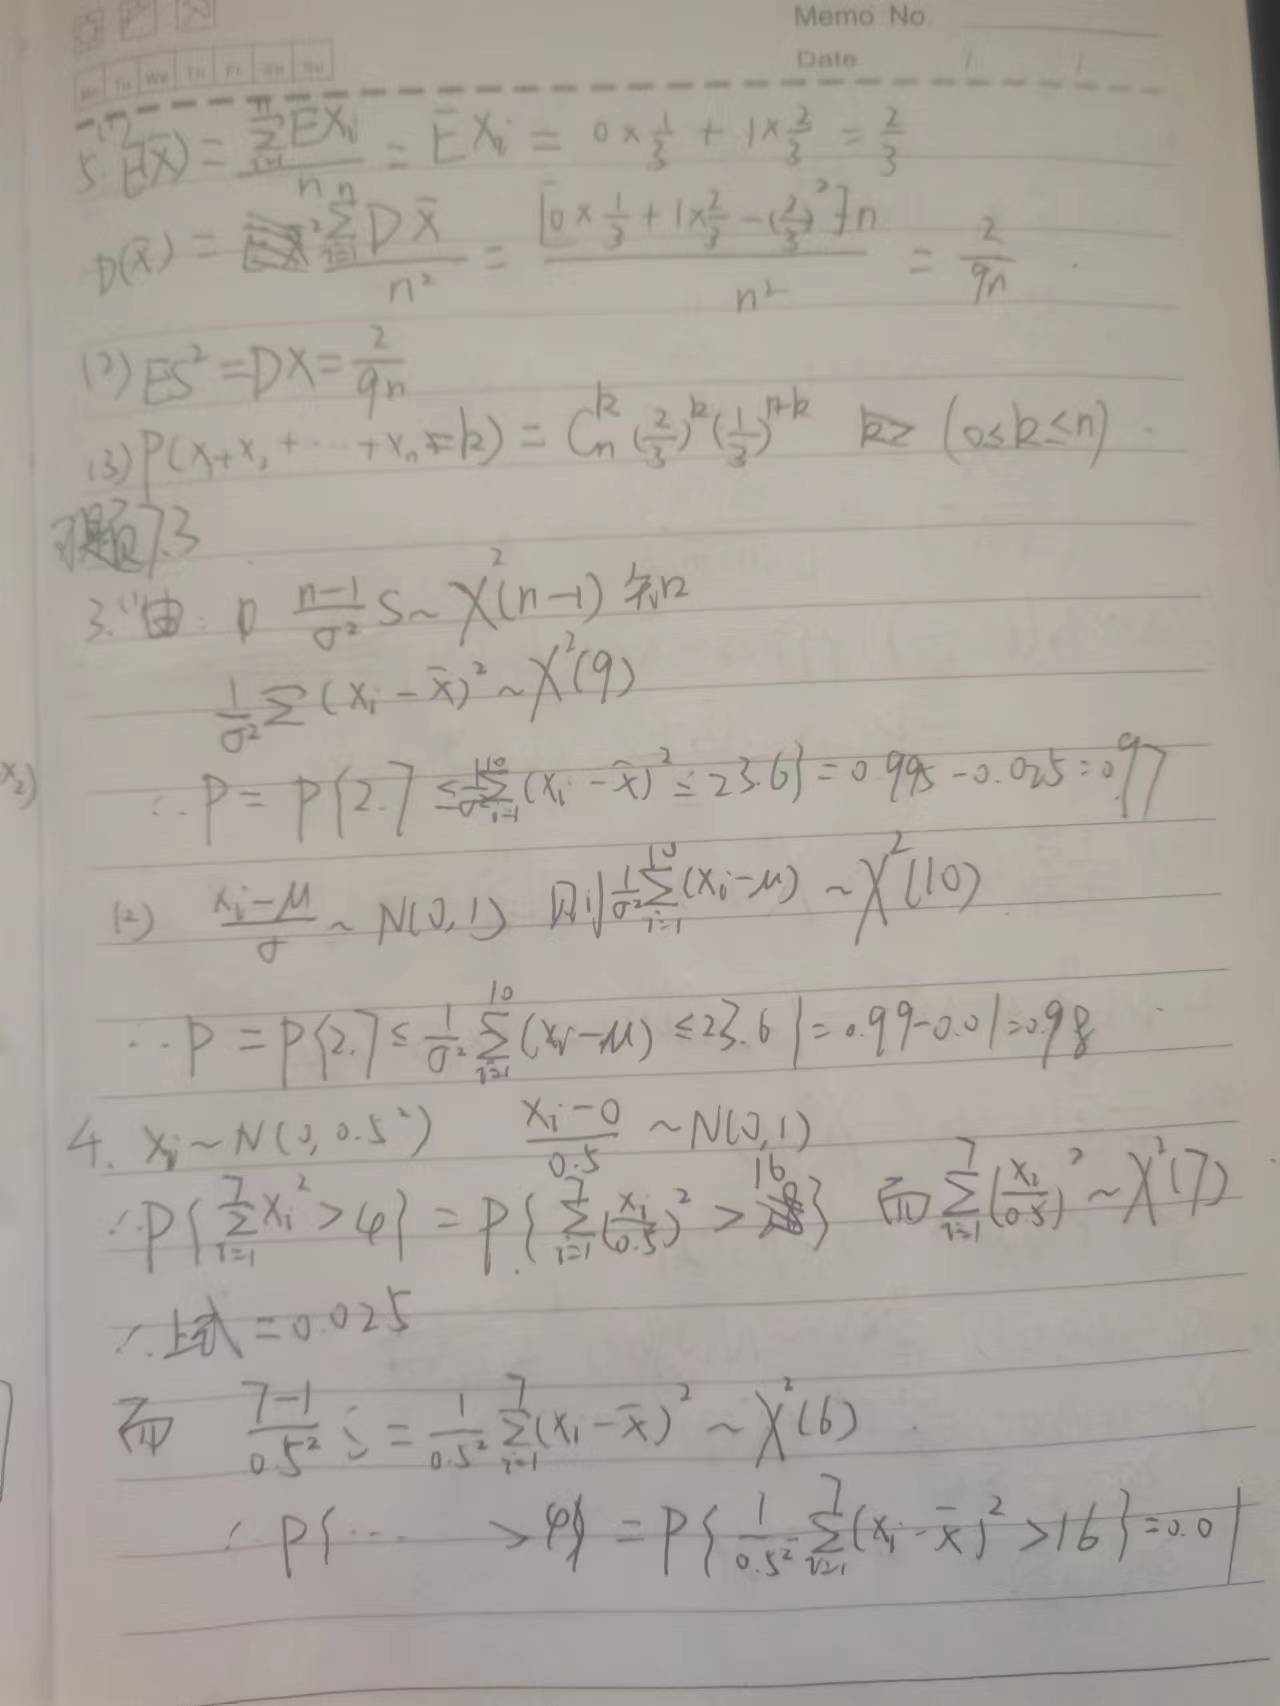 Memo No
Date / /
Mo Tu We Th Fr Sa Su
5. (1) E(X̄) = \frac{\sum_{i=1}^{n} EX_i}{n} = EX_i = 0×\frac{1}{3} + 1×\frac{2}{3} = \frac{2}{3}
D(X̄) = \frac{\sum_{i=1}^{n} DX̄}{n²} = \frac{[0×\frac{1}{3} + 1×\frac{2}{3} - (\frac{2}{3})²]n}{n²} = \frac{2}{9n}
(2) ES² = DX = \frac{2}{9n}
(3) P(X_1+X_2+⋯+X_n=k) = C_n^k (\frac{2}{3})^k (\frac{1}{3})^{n-k} k≥ (0≤k≤n)
习题7.3
3. (1) 由: \frac{n-1}{σ²} S ~ χ²(n-1) 知
\frac{1}{σ²} Σ(X_i - X̄)² ~ χ²(9)
∴ P = P{2.7 ≤ \frac{1}{σ²} \sum_{i=1}^{10} (X_i - X̄)² ≤ 23.6} = 0.995 - 0.025 = 0.97
x₂)
(2) \frac{X_i - μ}{σ} ~ N(0,1) 则 \frac{1}{σ²} \sum_{i=1}^{10} (X_i - μ) ~ χ²(10)
∴ P = P{2.7 ≤ \frac{1}{σ²} \sum_{i=1}^{10} (X_i - μ) ≤ 23.6} = 0.99 - 0.01 = 0.98
4. X_i ~ N(0, 0.5²) \frac{X_i - 0}{0.5} ~ N(0,1)
∴ P{\sum_{i=1}^{7} X_i² > 4} = P{\sum_{i=1}^{7} (\frac{X_i}{0.5})² > 16} 而 \sum_{i=1}^{7} (\frac{X_i}{0.5})² ~ χ²(7)
∴ 上式 = 0.025
而 \frac{7-1}{0.5²} S = \frac{1}{0.5²} \sum_{i=1}^{7} (X_i - X̄)² ~ χ²(6)
∴ P{⋯ > 4} = P{\frac{1}{0.5²} \sum_{i=1}^{7} (X_i - X̄)² > 16} = 0.01